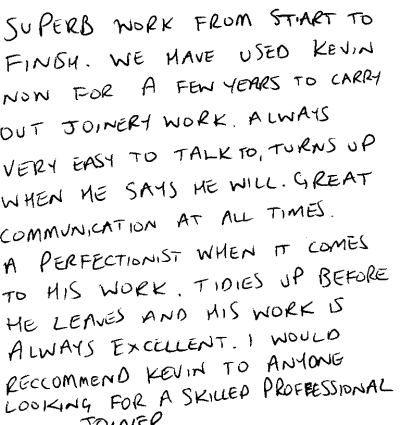 SUPERB WORK FROM START TO
FINISH. WE HAVE USED KEVIN
NOW FOR A FEW YEARS TO CARRY
OUT JOINERY WORK. ALWAYS
VERY EASY TO TALK TO, TURNS UP
WHEN HE SAYS HE WILL. GREAT
COMMUNICATION AT ALL TIMES.
A PERFECTIONIST WHEN IT COMES
TO HIS WORK. TIDIES UP BEFORE
HE LEAVES AND HIS WORK IS
ALWAYS EXCELLENT. I WOULD
RECCOMMEND KEVIN TO ANYONE
LOOKING FOR A SKILLED PROFFESSIONAL
JOINER